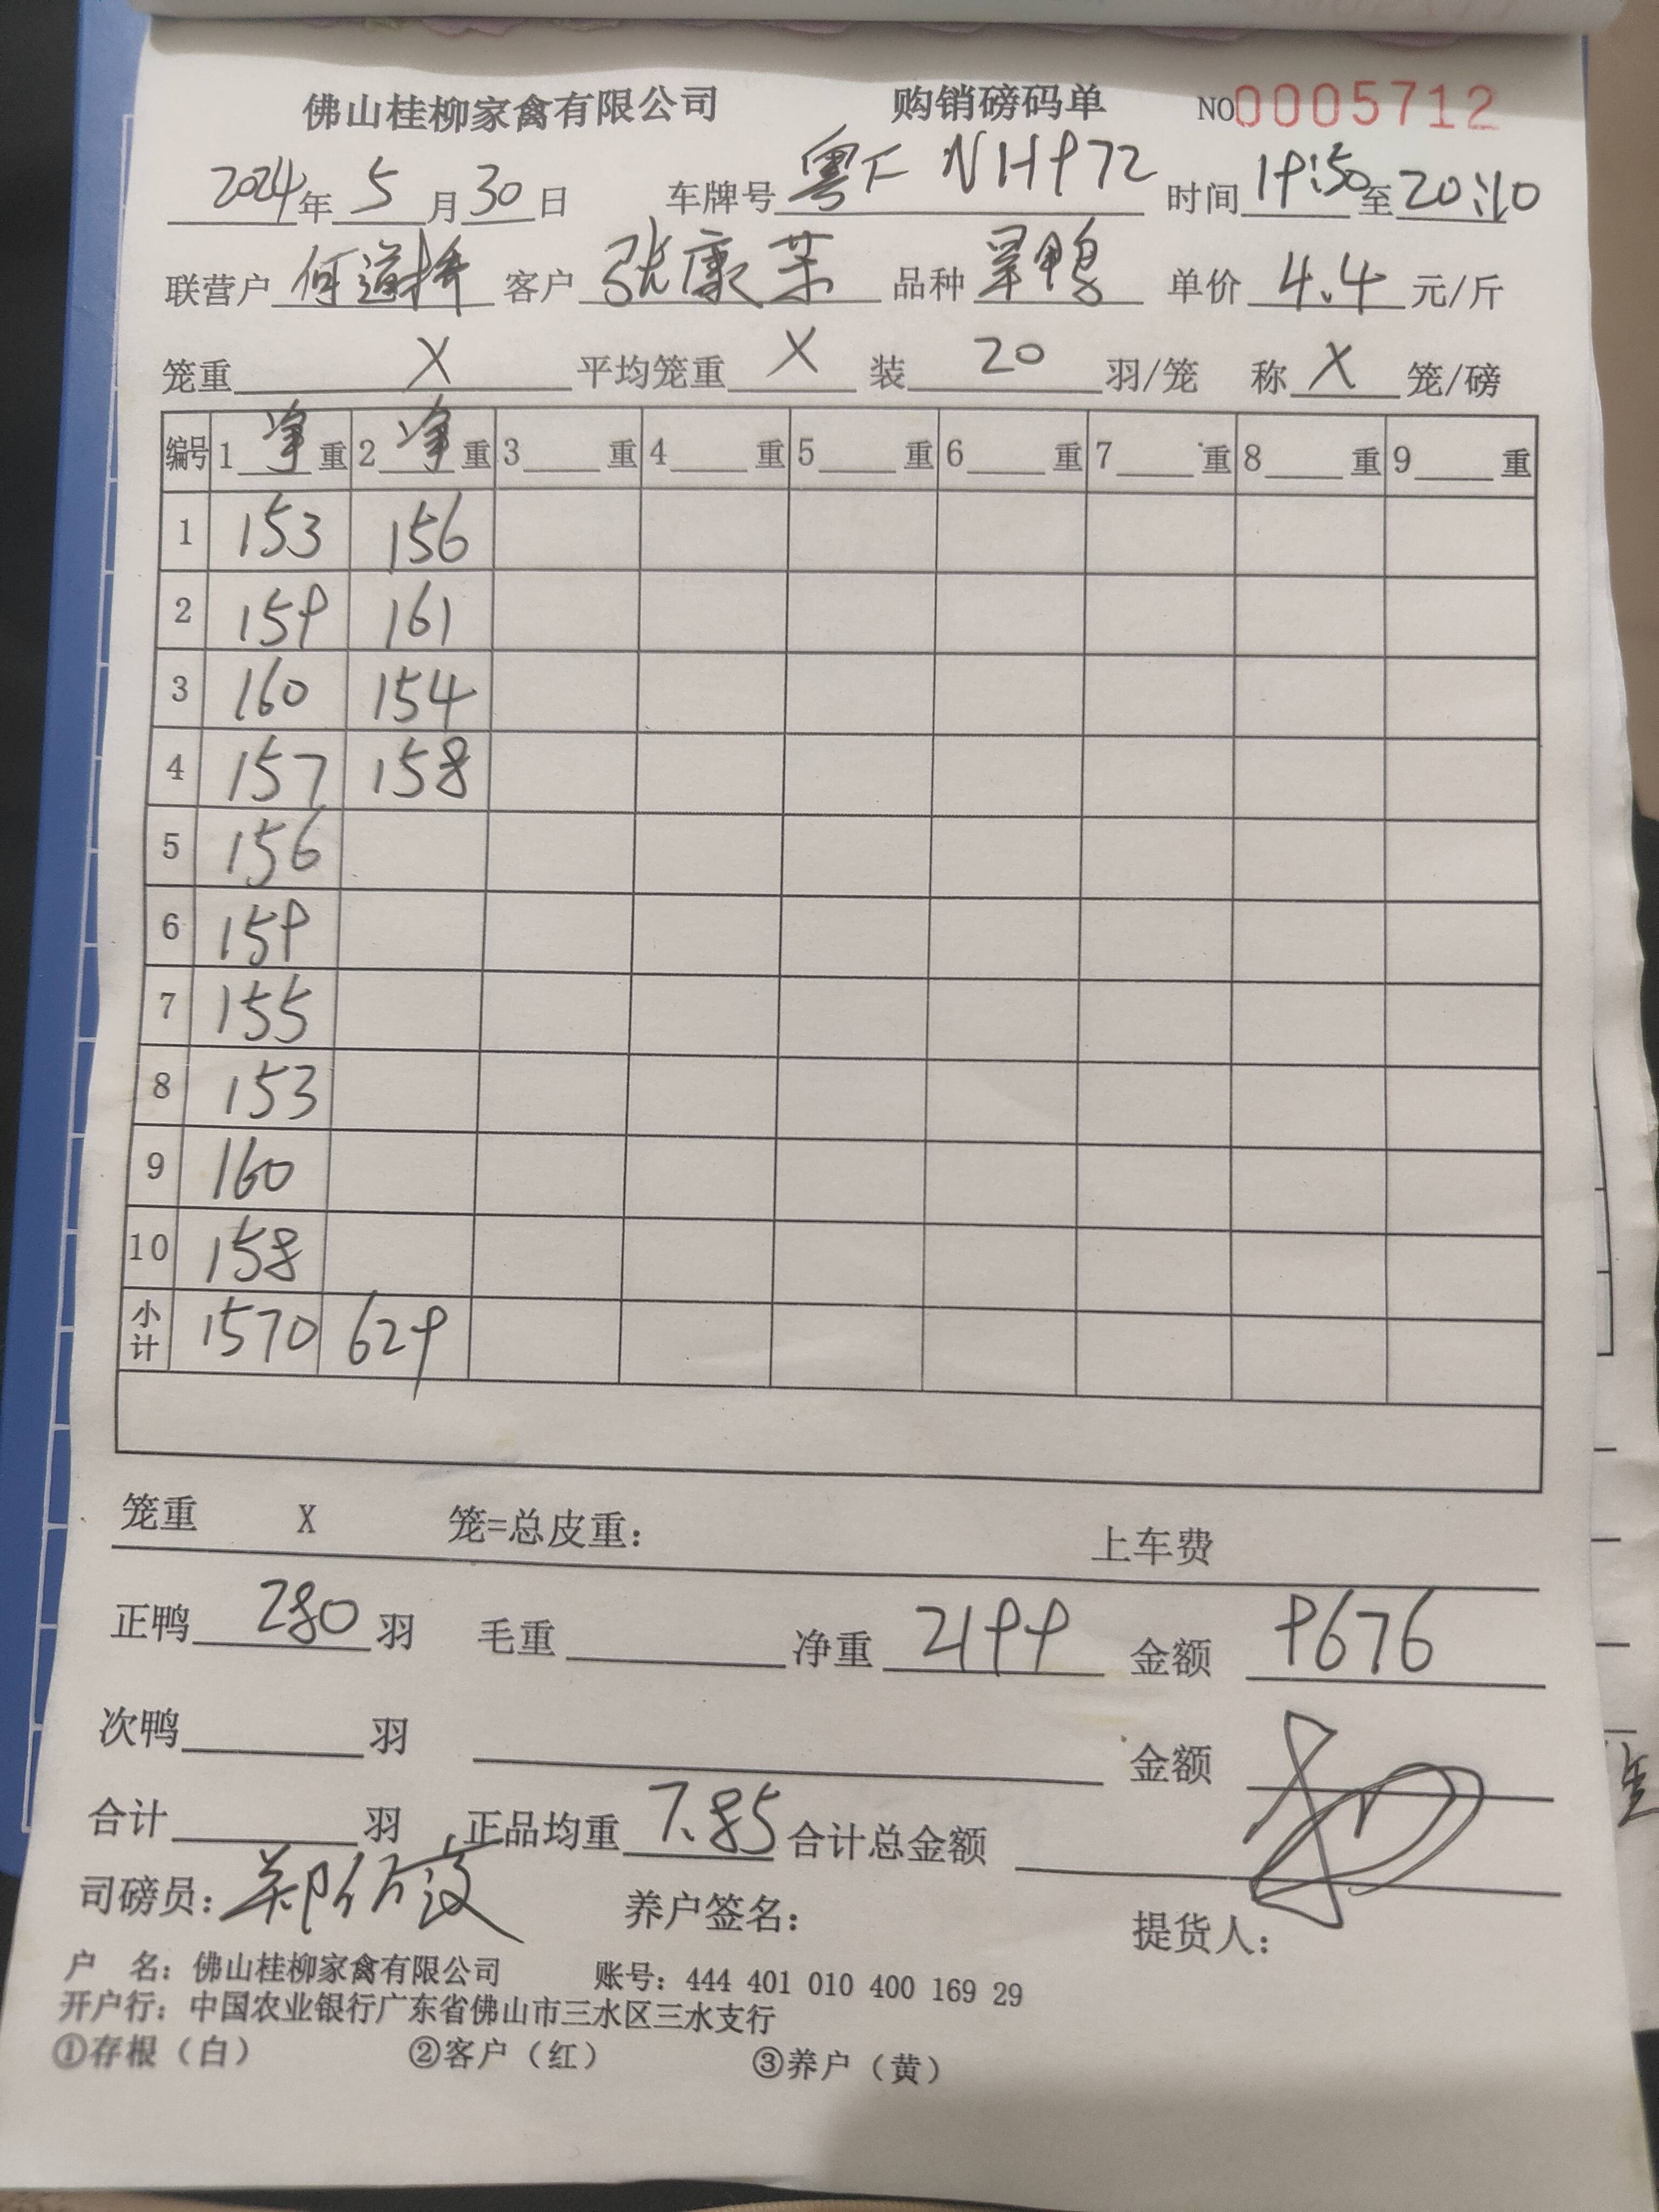 佛山桂柳家禽有限公司 购销磅码单 NO0005712
2024年5月30日 车牌号 粤F NH972 时间 19:50至20:10
联营户 何道 客户 张康荣 品种 旱鸭 单价 4.4 元/斤
笼重 X 平均笼重 X 装 20 羽/笼 称 X 笼/磅
编号 1 净 重 2 净 重 3 重 4 重 5 重 6 重 7 重 8 重 9 重
1 153 156
2 159 161
3 160 154
4 157 158
5 156
6 159
7 155
8 153
9 160
10 158
小计 1570 629
笼重 X 笼=总皮重: 上车费
正鸭 280 羽 毛重 净重 2199 金额 9676
次鸭 羽 金额
合计 羽 正品均重 7.85 合计总金额
司磅员: 郑 养户签名: 提货人:
户 名: 佛山桂柳家禽有限公司 账号: 444 401 010 400 169 29
开户行: 中国农业银行广东省佛山市三水区三水支行
①存根(白) ②客户(红) ③养户(黄)